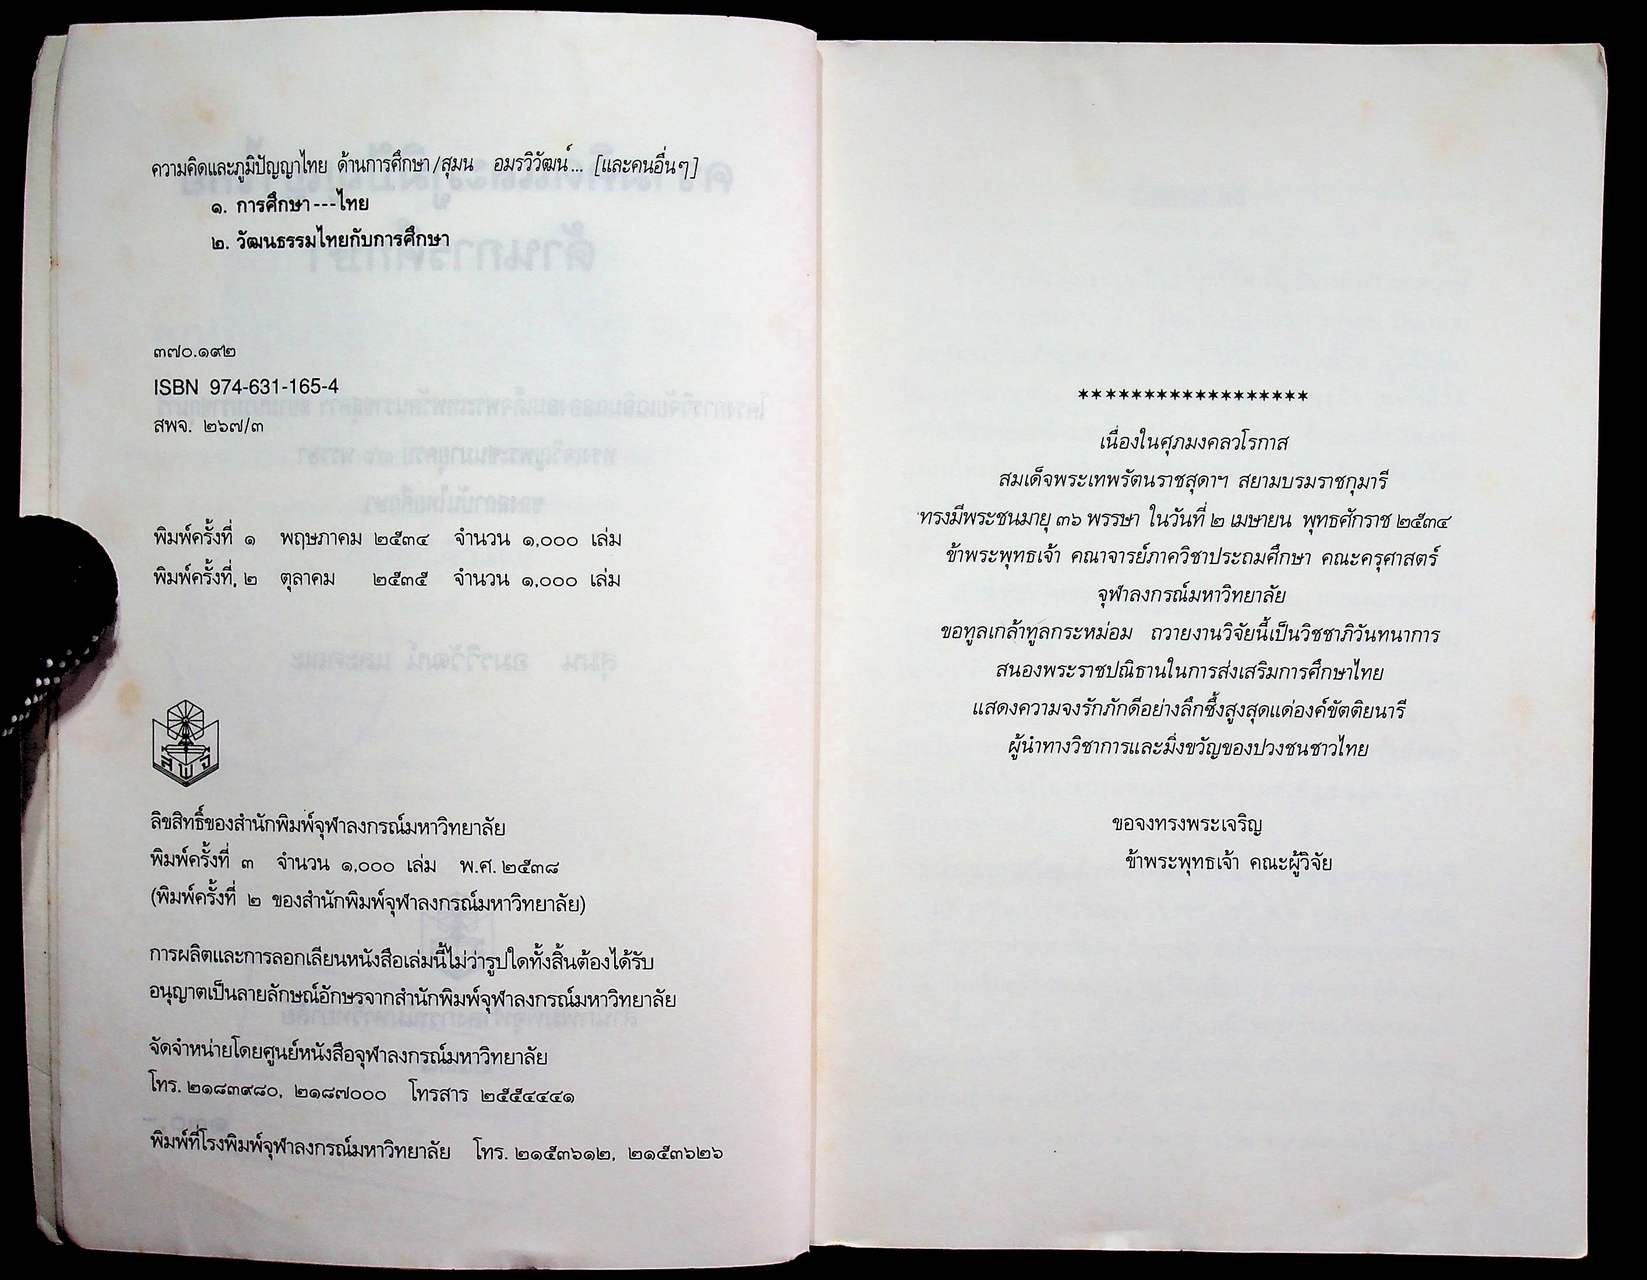 ความคิดและภูมิปัญญาไทย ด้านการศึกษา/สุมน อมรวิวัฒน์... [และคนอื่นๆ]
๑. การศึกษา---ไทย
๒. วัฒนธรรมไทยกับการศึกษา
๓๗๐.๑๙๒
ISBN 974-631-165-4
สพจ. ๒๖๗/๓
พิมพ์ครั้งที่ ๑ พฤษภาคม ๒๕๓๔ จำนวน ๑,๐๐๐ เล่ม
พิมพ์ครั้งที่ ๒ ตุลาคม ๒๕๓๕ จำนวน ๑,๐๐๐ เล่ม
สพจ
ลิขสิทธิ์ของสำนักพิมพ์จุฬาลงกรณ์มหาวิทยาลัย
พิมพ์ครั้งที่ ๓ จำนวน ๑,๐๐๐ เล่ม พ.ศ. ๒๕๓๘
(พิมพ์ครั้งที่ ๒ ของสำนักพิมพ์จุฬาลงกรณ์มหาวิทยาลัย)
การผลิตและการลอกเลียนหนังสือเล่มนี้ไม่ว่ารูปใดทั้งสิ้นต้องได้รับ
อนุญาตเป็นลายลักษณ์อักษรจากสำนักพิมพ์จุฬาลงกรณ์มหาวิทยาลัย
จัดจำหน่ายโดยศูนย์หนังสือจุฬาลงกรณ์มหาวิทยาลัย
โทร. ๒๑๘๓๙๘๐, ๒๑๘๗๐๐๐ โทรสาร ๒๕๕๔๔๔๑
พิมพ์ที่โรงพิมพ์จุฬาลงกรณ์มหาวิทยาลัย โทร. ๒๑๕๓๖๑๒, ๒๑๕๓๖๒๖
******************
เนื่องในศุภมงคลวโรกาส
สมเด็จพระเทพรัตนราชสุดาฯ สยามบรมราชกุมารี
ทรงมีพระชนมายุ ๓๖ พรรษา ในวันที่ ๒ เมษายน พุทธศักราช ๒๕๓๔
ข้าพระพุทธเจ้า คณาจารย์ภาควิชาประถมศึกษา คณะครุศาสตร์
จุฬาลงกรณ์มหาวิทยาลัย
ขอทูลเกล้าทูลกระหม่อม ถวายงานวิจัยนี้เป็นวิชชาภิวันทนาการ
สนองพระราชปณิธานในการส่งเสริมการศึกษาไทย
แสดงความจงรักภักดีอย่างลึกซึ้งสูงสุดแด่องค์ขัตติยนารี
ผู้นำทางวิชาการและมิ่งขวัญของปวงชนชาวไทย
ขอจงทรงพระเจริญ
ข้าพระพุทธเจ้า คณะผู้วิจัย